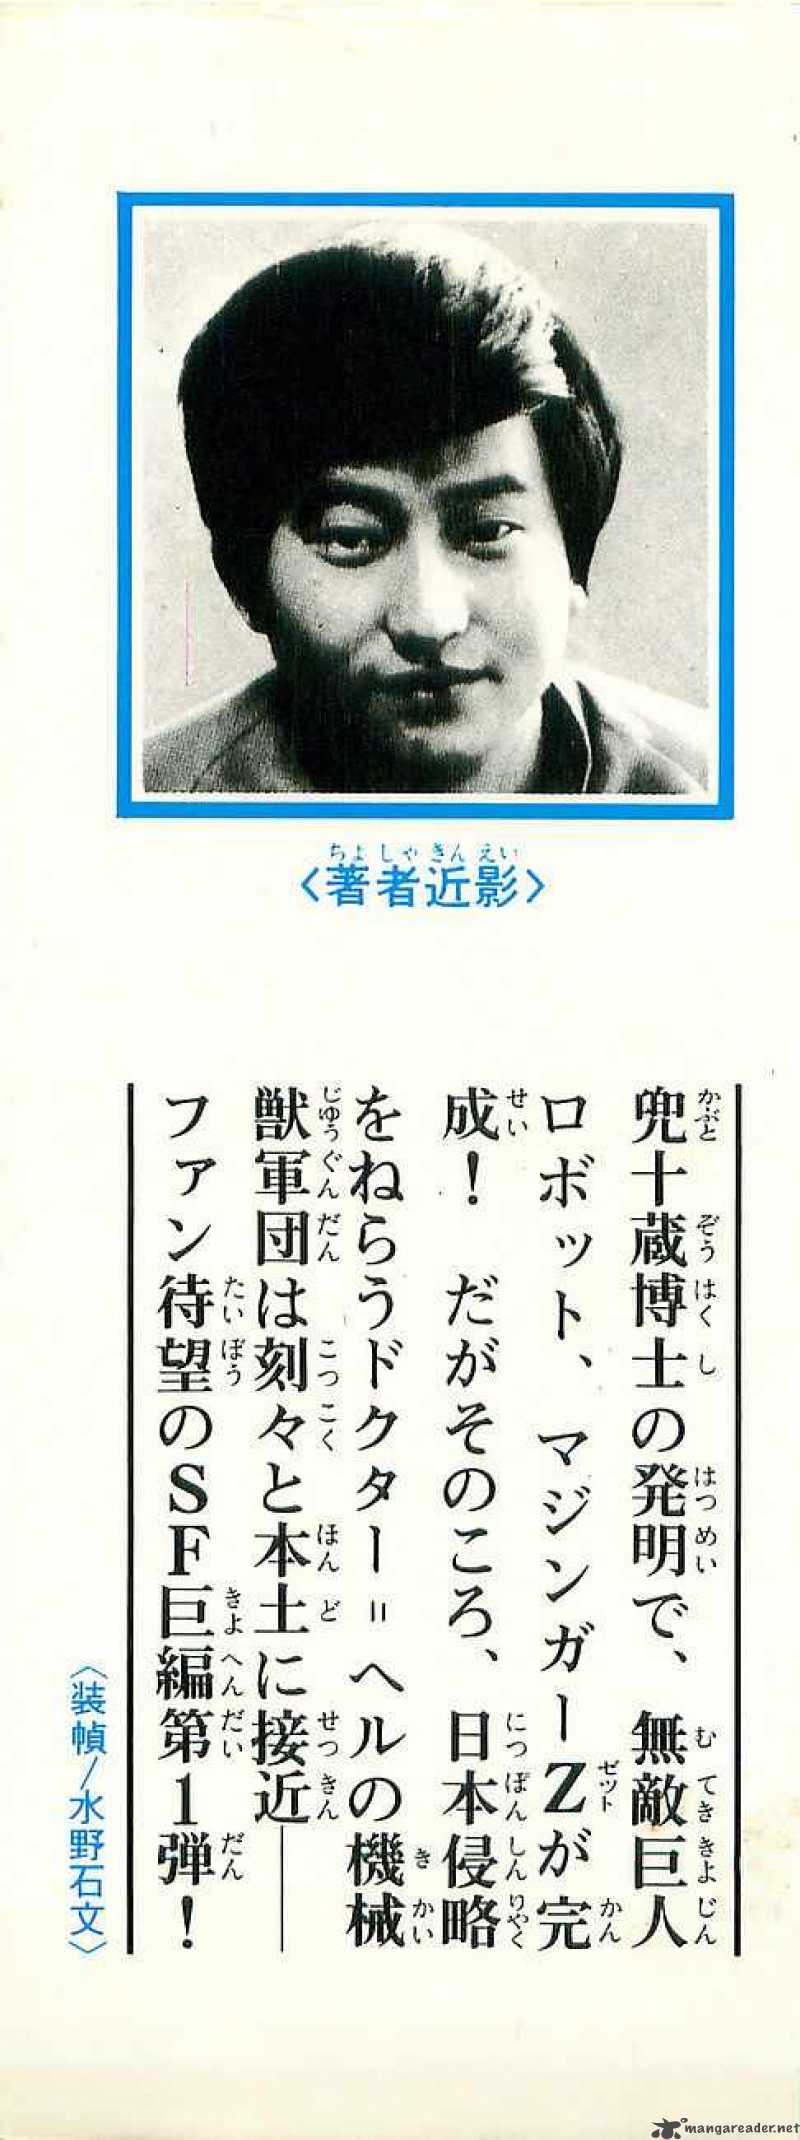 〈著者近影〉
兜十蔵博士の発明で、無敵巨人
ロボット、マジンガーZが完
成！　だがそのころ、日本侵略
をねらうドクター＝ヘルの機械
獣軍団は刻々と本土に接近――
ファン待望のSF巨編第1弾！
〈装幀/水野石文〉
mangareader.net